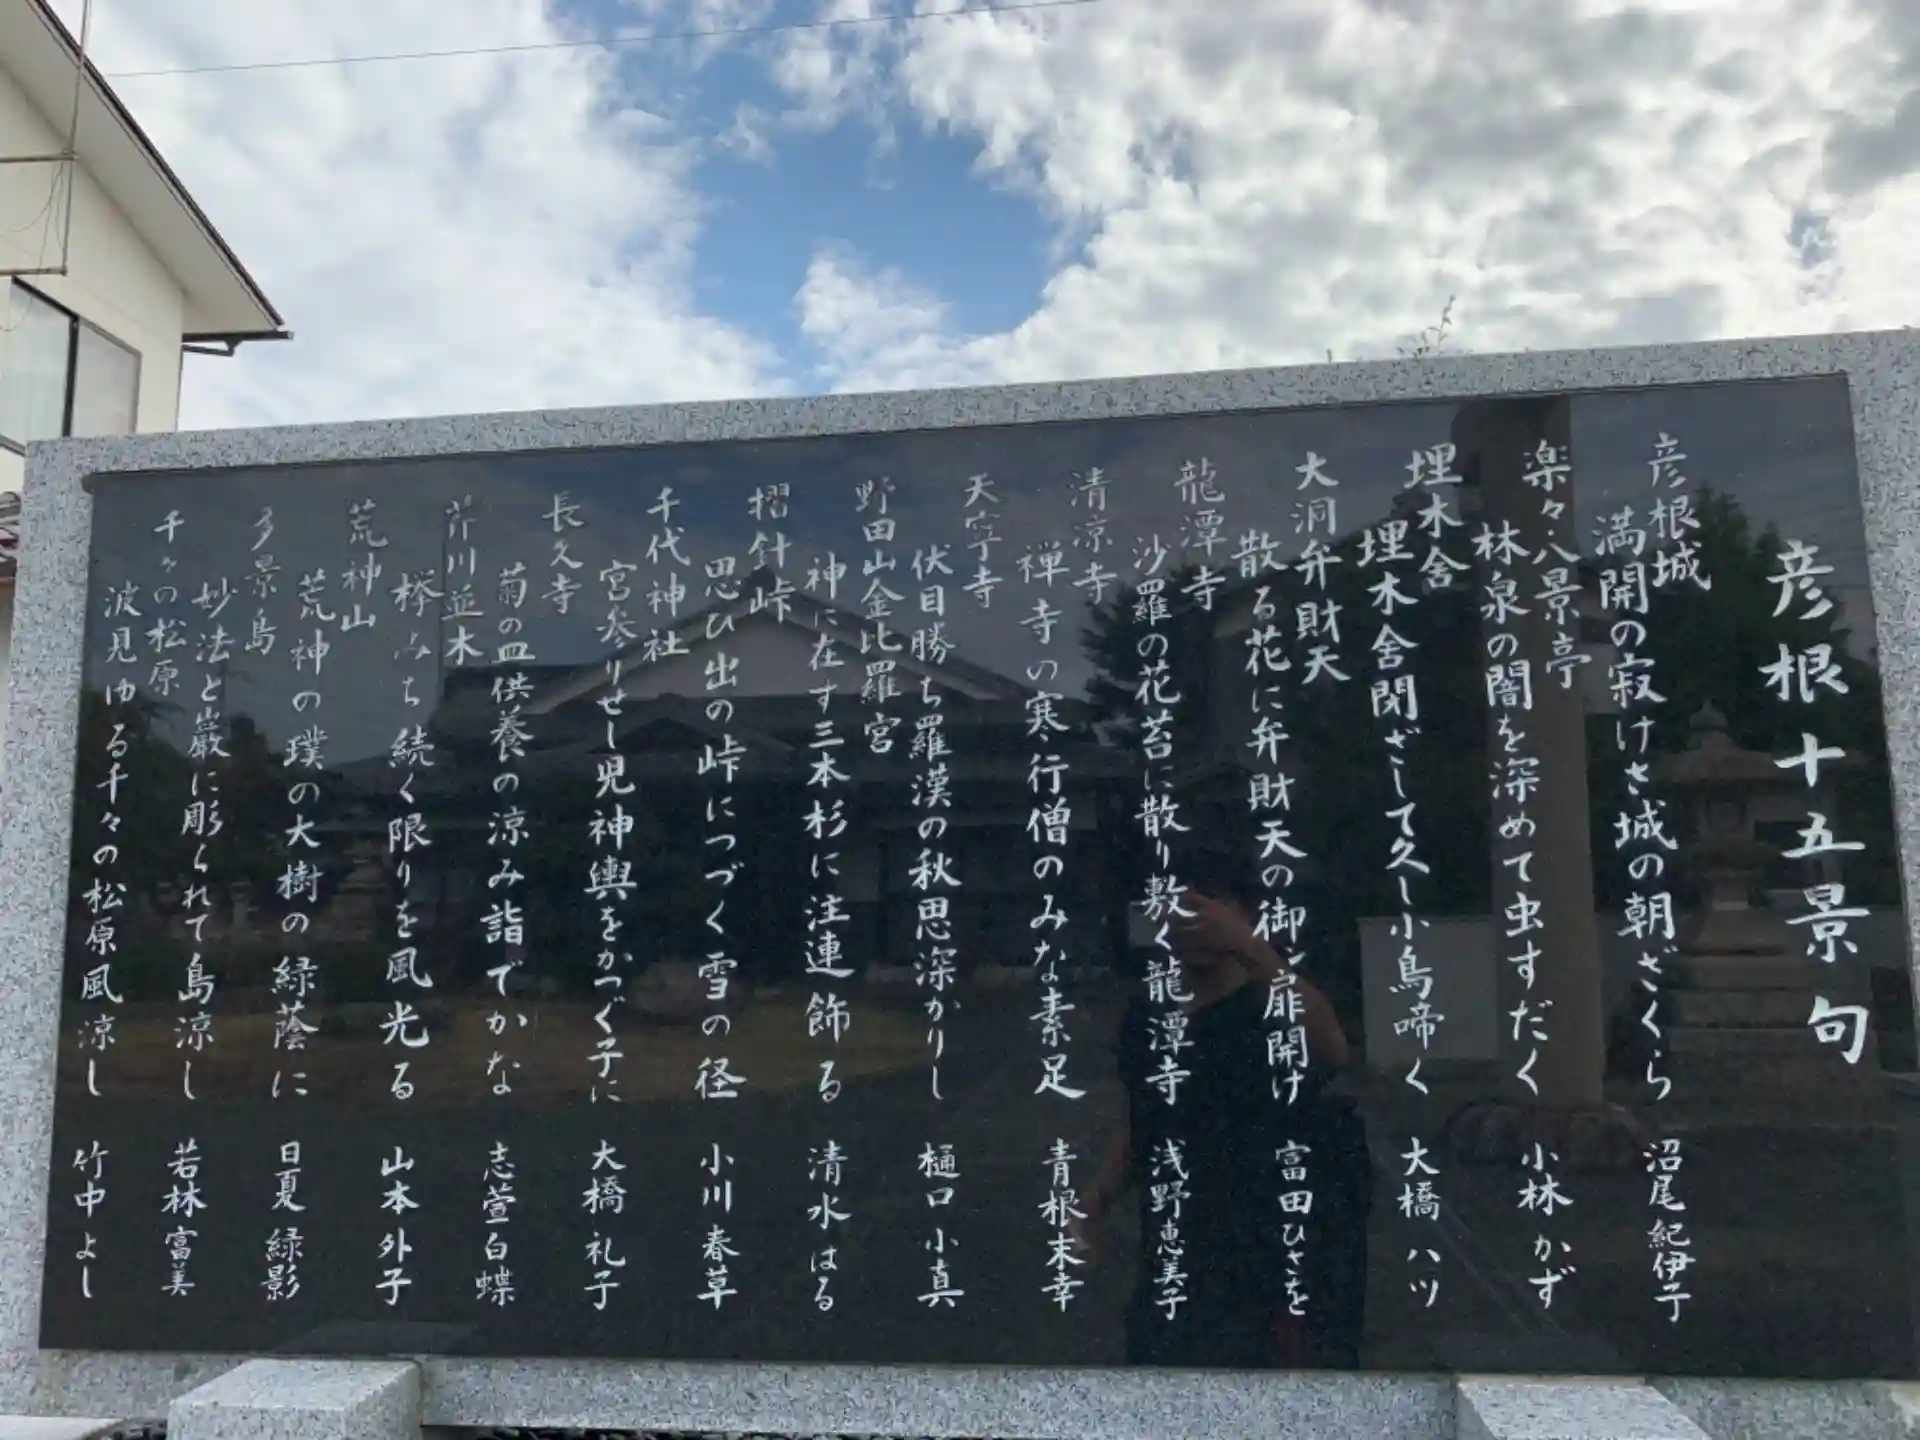 彦根十五景句
彦根城
満開の寂けさ城の朝ざくら 沼尾紀伊子
楽々・八景亭
林泉の闇を深めて虫すだく 小林かず
埋木舎
埋木舎閉ざして久し小鳥啼く 大橋ハツ
大洞弁財天
散る花に弁財天の御ン扉開け 富田ひさを
龍潭寺
沙羅の花苔に散り敷く龍潭寺 浅野恵美子
清凉寺
禅寺の寒行僧のみな素足 青根末幸
天寧寺
伏目勝ち羅漢の秋思深かりし 樋口小真
野田山金比羅宮
神に在す三本杉に注連飾る 清水はる
摺針峠
思ひ出の峠につづく雪の径 小川春草
千代神社
宮参りせし児神輿をかつぐ子に 大橋礼子
長久寺
菊の皿供養の涼み詣でかな 志萱白蝶
芹川並木
欅みち続く限りを風光る 山本外子
荒神山
荒神の璞の大樹の緑蔭に 日夏緑影
多景島
妙法と巌に彫られて島涼し 若林富美
千々の松原
波見ゆる千々の松原風涼し 竹中よし